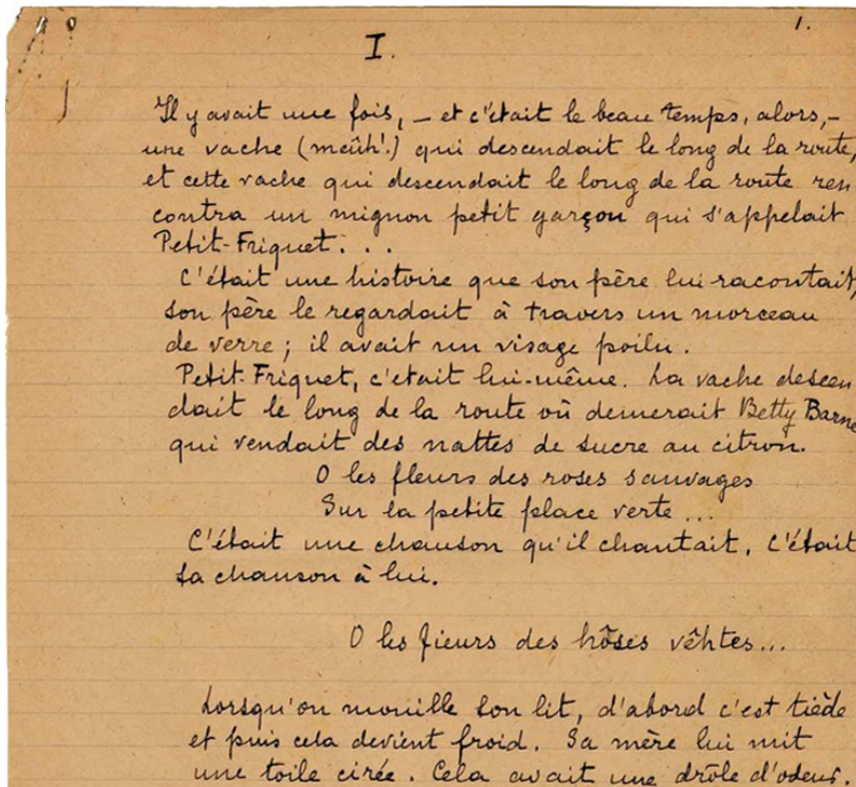 1.
I.
Il y avait une fois, – et c'était le beau temps, alors, –
une vache (meûh!) qui descendait le long de la route,
et cette vache qui descendait le long de la route ren
contra un mignon petit garçon qui s'appelait
Petit-Friquet . . .
C'était une histoire que son père lui racontait,
son père le regardait à travers un morceau
de verre ; il avait un visage poilu.
Petit-Friquet, c'etait lui-même. La vache descen
dait le long de la route où demerait Betty Barne
qui vendait des nattes de sucre au citron.
O les fleurs des roses sauvages
Sur la petite place verte ...
C'était une chanson qu'il chantait, C'était
sa chanson à lui.
O les fieurs des hôses vêhtes...
Lorsqu'on mouille son lit, d'abord c'est tiède
et puis cela devient froid. Sa mère lui mit
une toile cirée. Cela avait une drôle d'odeur.